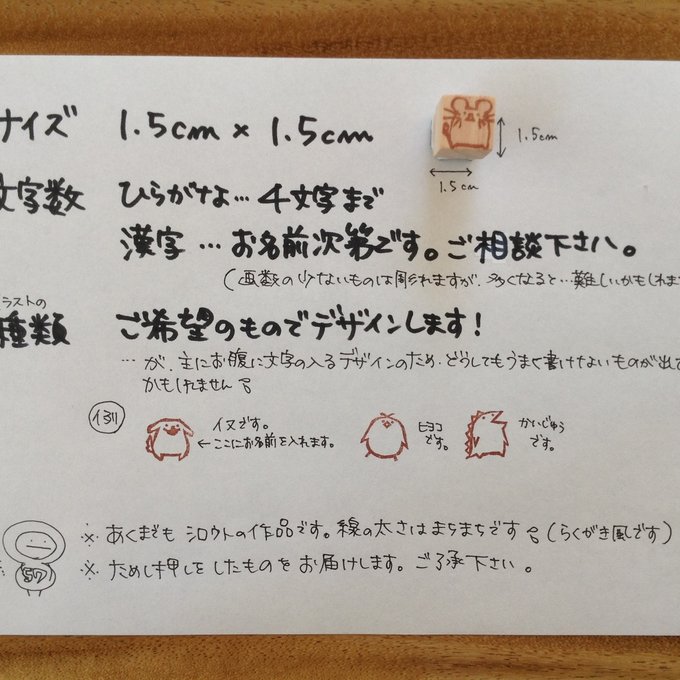 サイズ 1.5cm × 1.5cm
1.5cm
1.5cm
文字数 ひらがな…4文字まで
漢字…お名前次第です。ご相談下さい。
(画数の少ないものは彫れますが、多くなると…難しいかもしれま
ラストの
種類 ご希望のものでデザインします!
…が、主にお腹に文字の入るデザインのため、どうしてもうまく書けないものが出て
かもしれません
例
イヌです。
←ここにお名前を入れます。
ヒヨコ
です。
かいじゅう
です。
※あくまでもシロウトの作品です。線の太さはまちまちです(らくがき風です)
※ためし押しをしたものをお届けします。ご了承下さい。